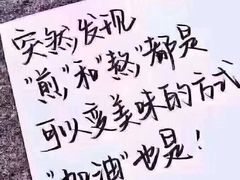 突然发现
"煎"和"熬"都是
可以变美味的方式
"加油"也是！